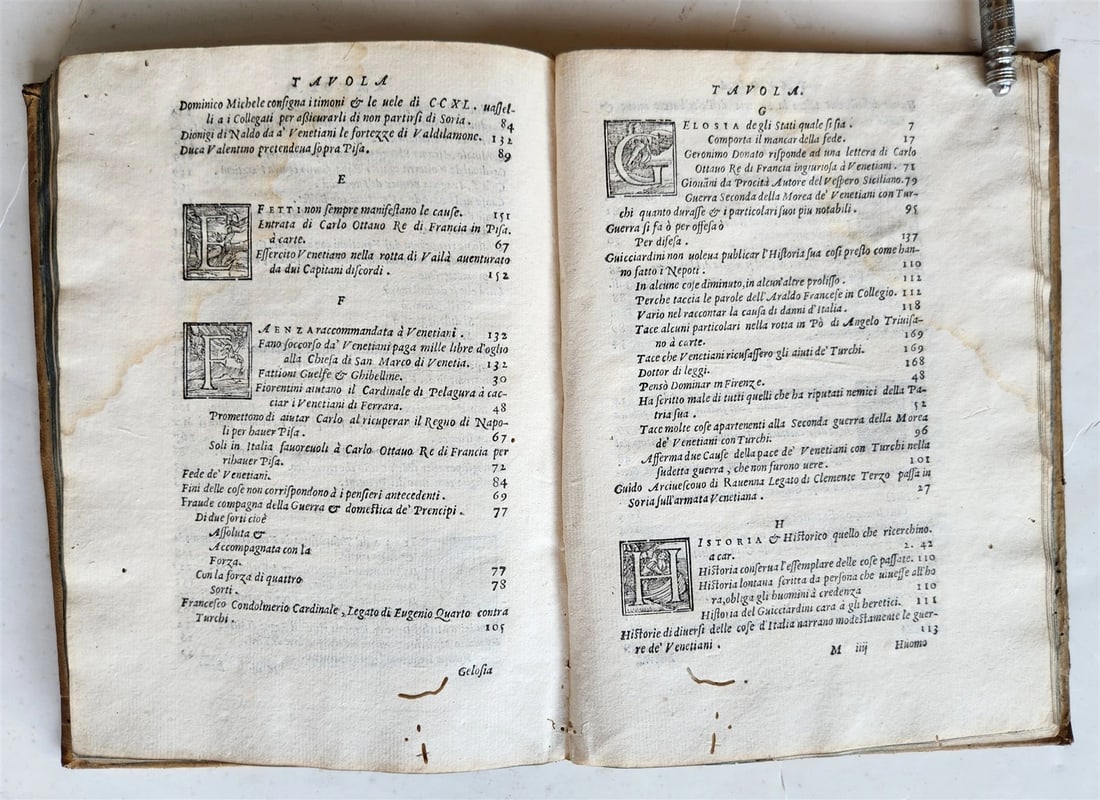 TAVOLA
Dominico Michele consigna i timoni & le uele di CCXL. uassel-
li a i Collegati per aßicurarli di non partirsi di Soria. 84
Dionigi di Naldo da a' Venetiani le fortezze di Valdilamone. 132
Duca Valentino pretendeua sopra Pisa. 89
E
EFFETTI non sempre manifestano le cause. 151
Entrata di Carlo Ottauo Re di Francia in Pisa.
à carte. 67
Essercito Venetiano nella rotta di Vailà auenturato
da dui Capitani discordi. 152
F
FAENZA raccommandata à Venetiani. 132
Fano soccorso da' Venetiani paga mille libre d'oglio
alla Chiesa di San Marco di Venetia. 132
Fattioni Guelfe & Ghibelline. 30
Fiorentini aiutano il Cardinale di Pelagura à cac-
ciar i Venetiani di Ferrara. 48
Promettono di aiutar Carlo al ricuperar il Regno di Napo-
li per hauer Pisa. 67
Soli in Italia fauoreuoli à Carlo Ottauo Re di Francia per
rihauer Pisa. 72
Fede de' Venetiani. 84
Fini delle cose non corrispondono à i pensieri antecedenti. 69
Fraude compagna della Guerra & domestica de' Prencipi. 77
Di due sorti cioè
Assoluta &
Accompagnata con la
Forza. 77
Con la forza di quattro
Sorti. 78
Francesco Condolmerio Cardinale, Legato di Eugenio Quarto contra
Turchi. 105
Gelosia
TAVOLA.
G
GELOSIA de gli Stati quale si sia. 7
Comporta il mancar della fede. 17
Geronimo Donato risponde ad una lettera di Carlo
Ottauo Re di Francia ingiuriosa à Venetiani. 71
Giouāni da Procità Autore del Vespero Siciliano. 79
Guerra Seconda della Morea de' Venetiani con Tur-
chi quanto durasse & i particolari suoi piu notabili. 95
Guerra si fa ò per offesa ò
Per difesa. 137
Guicciardini non uoleua publicar l'Historia sua così presto come han-
no fatto i Nepoti. 110
In alcune cose diminuto, in alcun'altre prolisso. 112
Perche taccia le parole dell'Araldo Francese in Collegio. 112
Vario nel raccontar la causa di danni d'Italia. 118
Tace alcuni particolari nella rotta in Pò di Angelo Triuisa-
no à carte. 169
Tace che Venetiani ricusassero gli aiuti de' Turchi. 169
Dottor di leggi. 168
Pensò Dominar in Firenze. 48
Ha scritto male di tutti quelli che ha riputati nemici della Pa-
tria sua. 52
Tace molte cose apartenenti alla Seconda guerra della Morea
de' Venetiani con Turchi. 96
Afferma due Cause della pace de' Venetiani con Turchi nella
sudetta guerra, che non furono uere. 101
Guido Arciuescouo di Rauenna Legato di Clemente Terzo passa in
Soria sull'armata Venetiana. 27
H
HISTORIA & Historico quello che ricerchino.
a car. 2. 42
Historia conserua l'essemplare delle cose passate. 110
Historia lontana scritta da persona che uiuesse all'ho
ra, obliga gli huomini à credenza 110
Historia del Guicciardini cara à gli heretici. 111
Historie di diuersi delle cose d'Italia narrano modestamente le guer-
re de' Venetiani. 113
M iiij Huomo